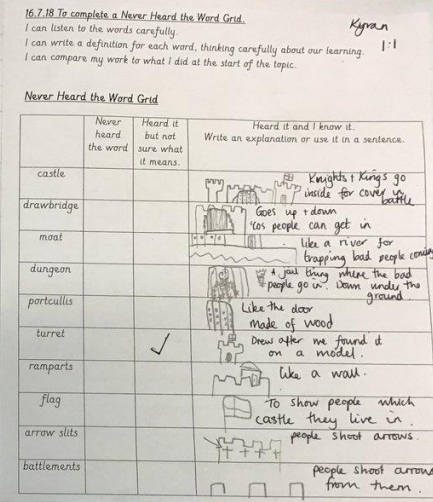 16.7.18 To complete a Never Heard the Word Grid.
Kyran
I can listen to the words carefully.
1:1
I can write a definition for each word, thinking carefully about our learning.
I can compare my work to what I did at the start of the topic.
Never Heard the Word Grid
Never heard the word
Heard it but not sure what it means.
Heard it and I know it. Write an explanation or use it in a sentence.
castle
Knights + Kings go
inside for cover in
battle
drawbridge
Goes up + down
'cos people can get in
moat
like a river for
trapping bad people coming
dungeon
A jail thing where the bad
people go in. Down under the
ground.
portcullis
Like the door
made of wood
turret
✓
Drew after me found it
on a model.
ramparts
like a wall.
flag
To show people which
castle they live in.
arrow slits
people shoot arrows.
battlements
people shoot arrows
from them.